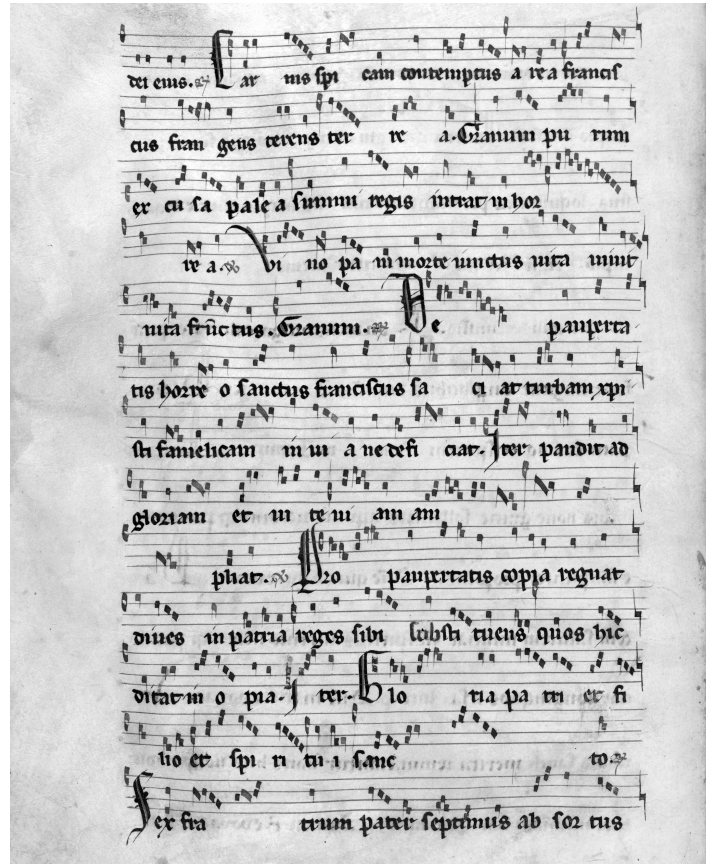 dei eius. Car nis spi cam contemptus a rea francis
cus fran gens terens ter re a. Granum pu rum
ex cu sa pale a summi regis intrat in hor
re a. Vi uo pa ni morte iunctus uita uiuit
uita frūc tus. Granum. De pauperta
tis horre o sanctus franciscus sa ci at turbam xpi
sti famelicam in ui a ne defi ciat. Iter pandit ad
gloriam et ui te ui am am
pliat. Pro paupertatis copia regnat
diues in patria reges sibi sub sti tuens quos hic
ditat in o pia. Iter. Glo ria pa tri et fi
lio et spi ri tu i sanc to.
Sex fra trum pater septimus ab sor tus